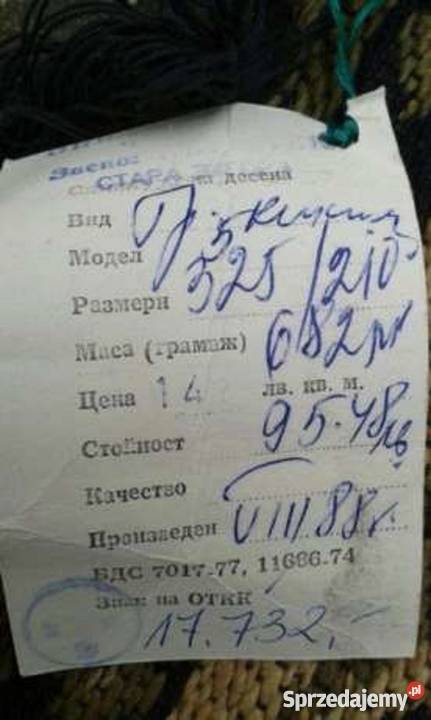 Звено:
СТАРА
на десена
Вид
Модел
Размери 325/210
Маса (грамаж) 682
Цена 14 лв. кв. м.
Стойност 95.48 лв
Качество
Произведен VIII 88 г.
БДС 7017-77, 11686.74
Знак на ОТКК
17.732,-
Sprzedajemy.pl